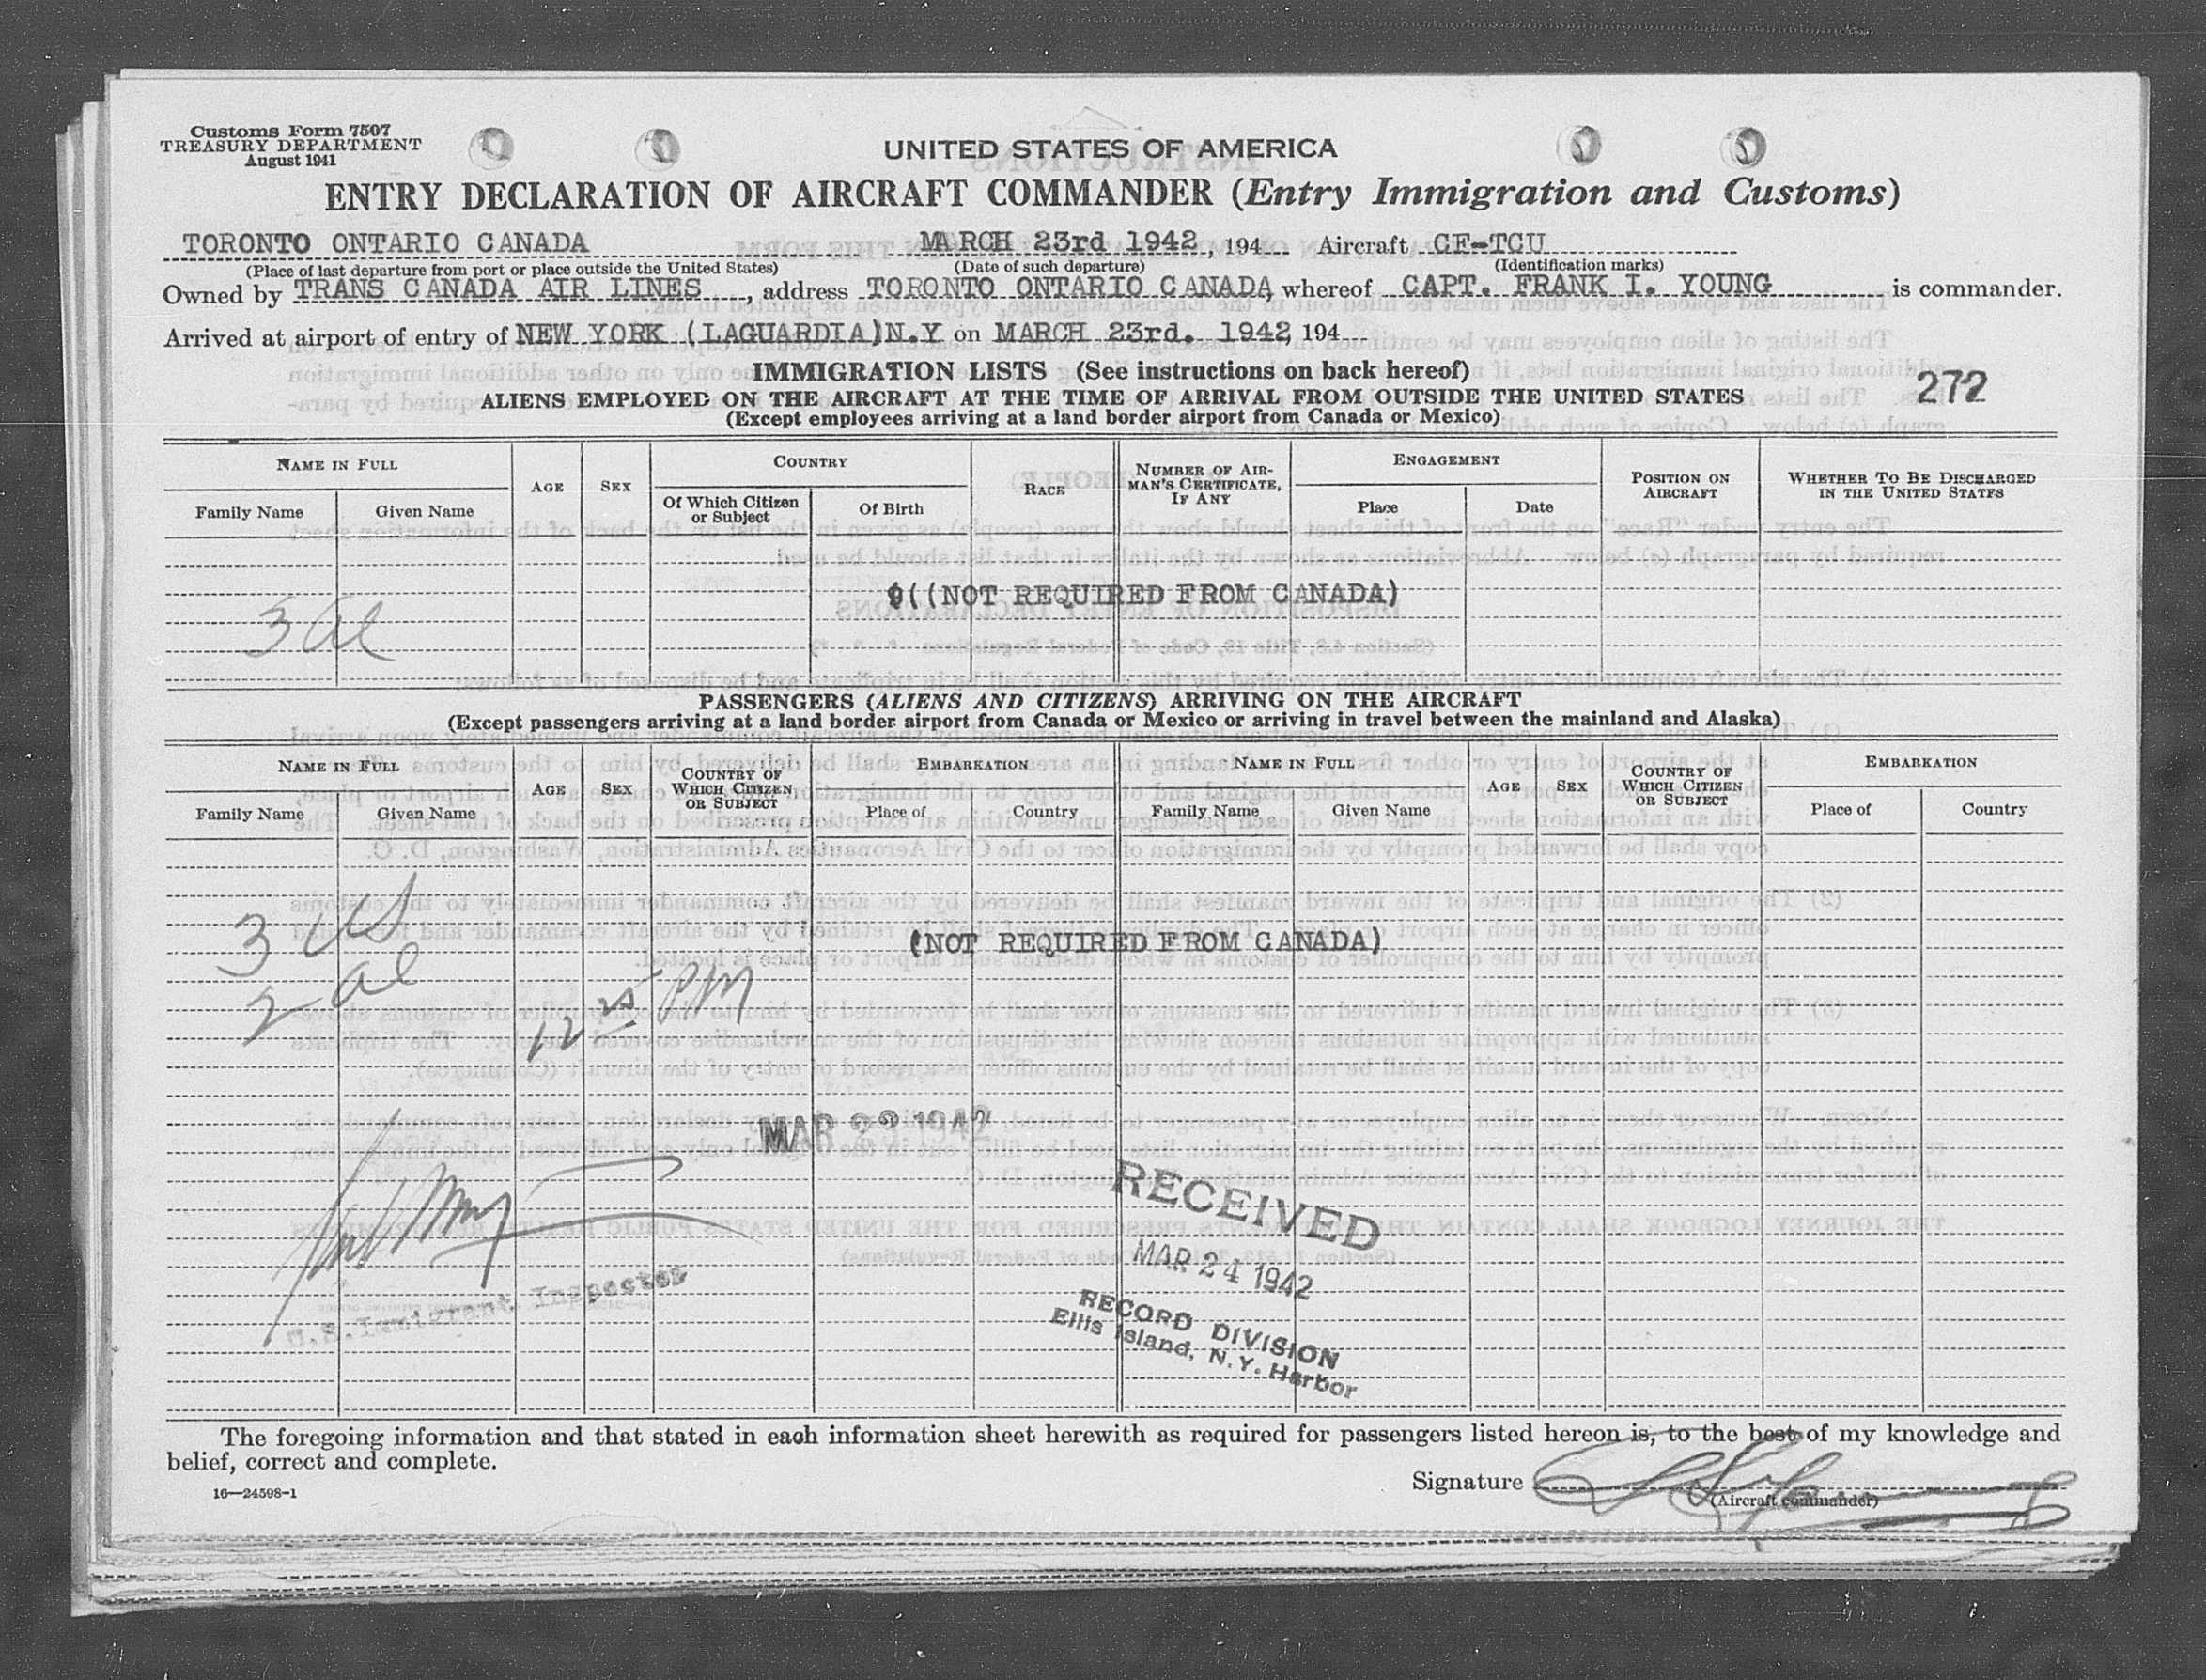 Customs Form 7507
TREASURY DEPARTMENT
August 1941
UNITED STATES OF AMERICA
ENTRY DECLARATION OF AIRCRAFT COMMANDER (Entry Immigration and Customs)
TORONTO ONTARIO CANADA MARCH 23rd 1942, 194 Aircraft CF-TCU
(Place of last departure from port or place outside the United States) (Date of such departure) (Identification marks)
Owned by TRANS CANADA AIR LINES, address TORONTO ONTARIO CANADA whereof CAPT. FRANK I. YOUNG is commander.
Arrived at airport of entry of NEW YORK (LAGUARDIA)N.Y on MARCH 23rd. 1942, 194
IMMIGRATION LISTS (See instructions on back hereof)
272
ALIENS EMPLOYED ON THE AIRCRAFT AT THE TIME OF ARRIVAL FROM OUTSIDE THE UNITED STATES
(Except employees arriving at a land border airport from Canada or Mexico)
NAME IN FULL AGE SEX COUNTRY RACE NUMBER OF AIRMAN'S CERTIFICATE, IF ANY ENGAGEMENT POSITION ON AIRCRAFT WHETHER TO BE DISCHARGED IN THE UNITED STATES
Family Name Given Name Of Which Citizen or Subject Of Birth Place Date
((NOT REQUIRED FROM CANADA)
3 al
PASSENGERS (ALIENS AND CITIZENS) ARRIVING ON THE AIRCRAFT
(Except passengers arriving at a land border airport from Canada or Mexico or arriving in travel between the mainland and Alaska)
NAME IN FULL AGE SEX COUNTRY OF WHICH CITIZEN OR SUBJECT EMBARKATION NAME IN FULL AGE SEX COUNTRY OF WHICH CITIZEN OR SUBJECT EMBARKATION
Family Name Given Name Place of Country Family Name Given Name Place of Country
3 US
(NOT REQUIRED FROM CANADA)
2 al
12 25 PM
MAR 23 1942
RECEIVED
MAR 24 1942
U.S. Immigrant Inspector
RECORD DIVISION
Ellis Island, N.Y. Harbor
The foregoing information and that stated in each information sheet herewith as required for passengers listed hereon is, to the best of my knowledge and
belief, correct and complete.
Signature
16—24598-1
(Aircraft commander)